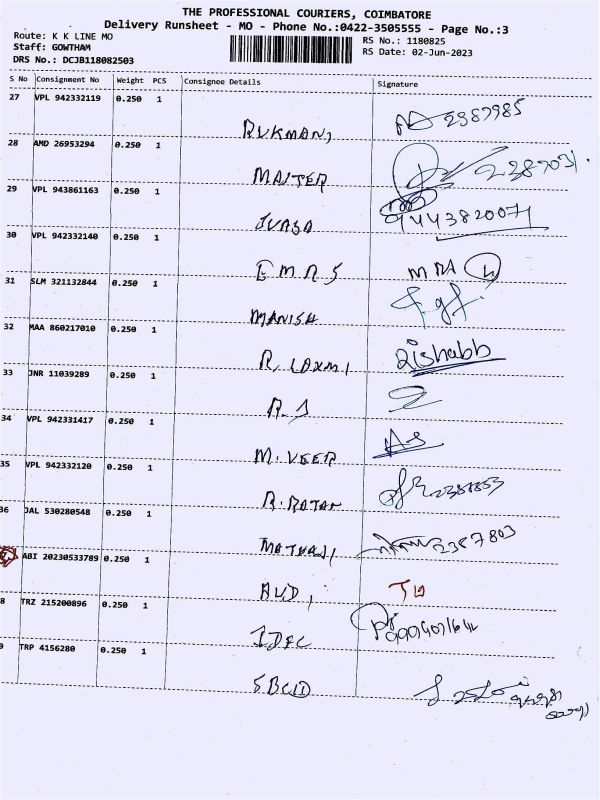 THE PROFESSIONAL COURIERS, COIMBATORE
Delivery Runsheet - MO - Phone No.:0422-3505555 - Page No.:3
Route: K K LINE MO RS No.: 1180825
Staff: GOWTHAM RS Date: 02-Jun-2023
DRS No.: DCJB118082503
S No Consignment No Weight PCS Consignee Details Signature
27 VPL 942332119 0.250 1
RUKMANI 2387985
28 AMD 26953294 0.250 1
MASTER 2387031
29 VPL 943861163 0.250 1
9443820071
30 VPL 942332140 0.250 1
EMRS
31 SLM 321132844 0.250 1
MANISH
32 MAA 860217010 0.250 1
R. LAXMI Rishabb
33 JNR 11039289 0.250 1
R. J
34 VPL 942331417 0.250 1
M. VEER AS
35 VPL 942332120 0.250 1
R. RATAN
36 JAL 530280548 0.250 1
MATHAJI 2387803
ABI 20230533789 0.250 1
AUDI
8 TRZ 215200896 0.250 1
IDFC
9 TRP 4156280 0.250 1